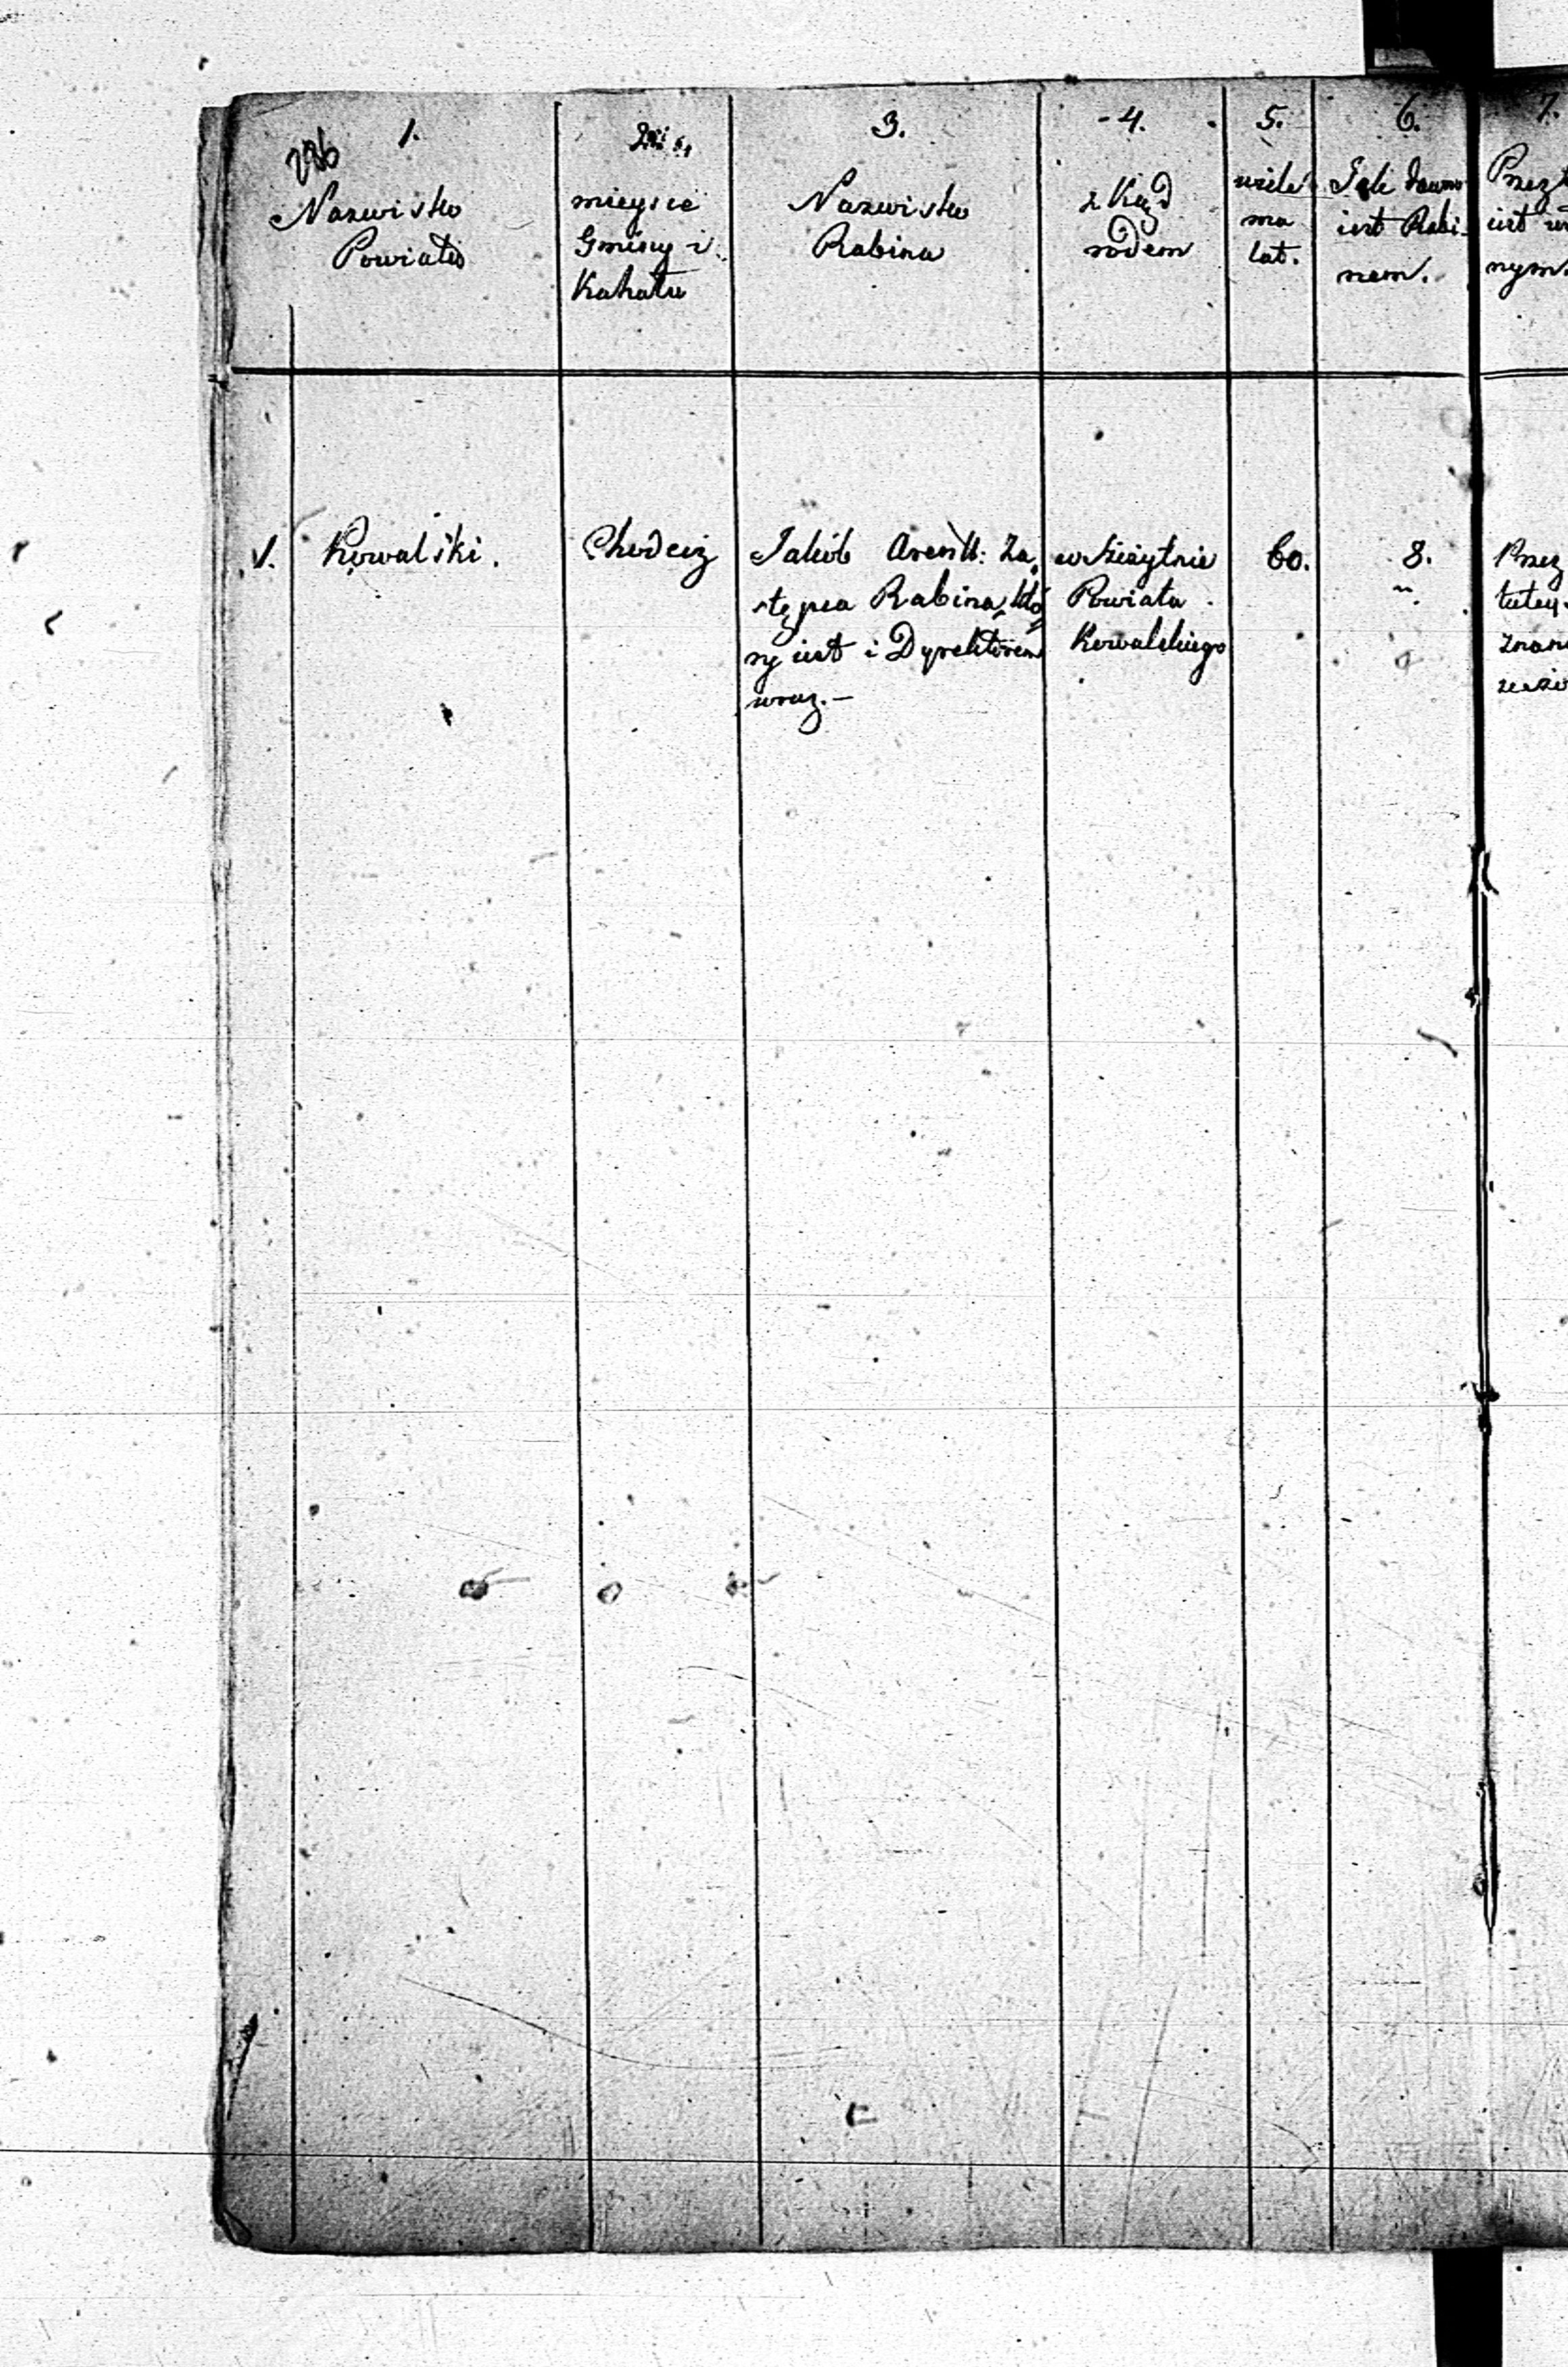 286
1.
Nazwisko
Powiatu
mieysce
Gminy i
Kahału
3.
Nazwisko
Rabina
4.
z Kąd
rodem
5.
wiele
ma
lat.
6.
Jak dawno
iest Rabi-
nem.
7.
Przez
iest
nym.
1.
Kowalski.
Chodecz
Jakób Za-
stępca Rabina, któ-
ry iest i Dyrektorem
wraz.—
w
Powiatu
Kowalskiego
60.
8.
Przez
tutey-